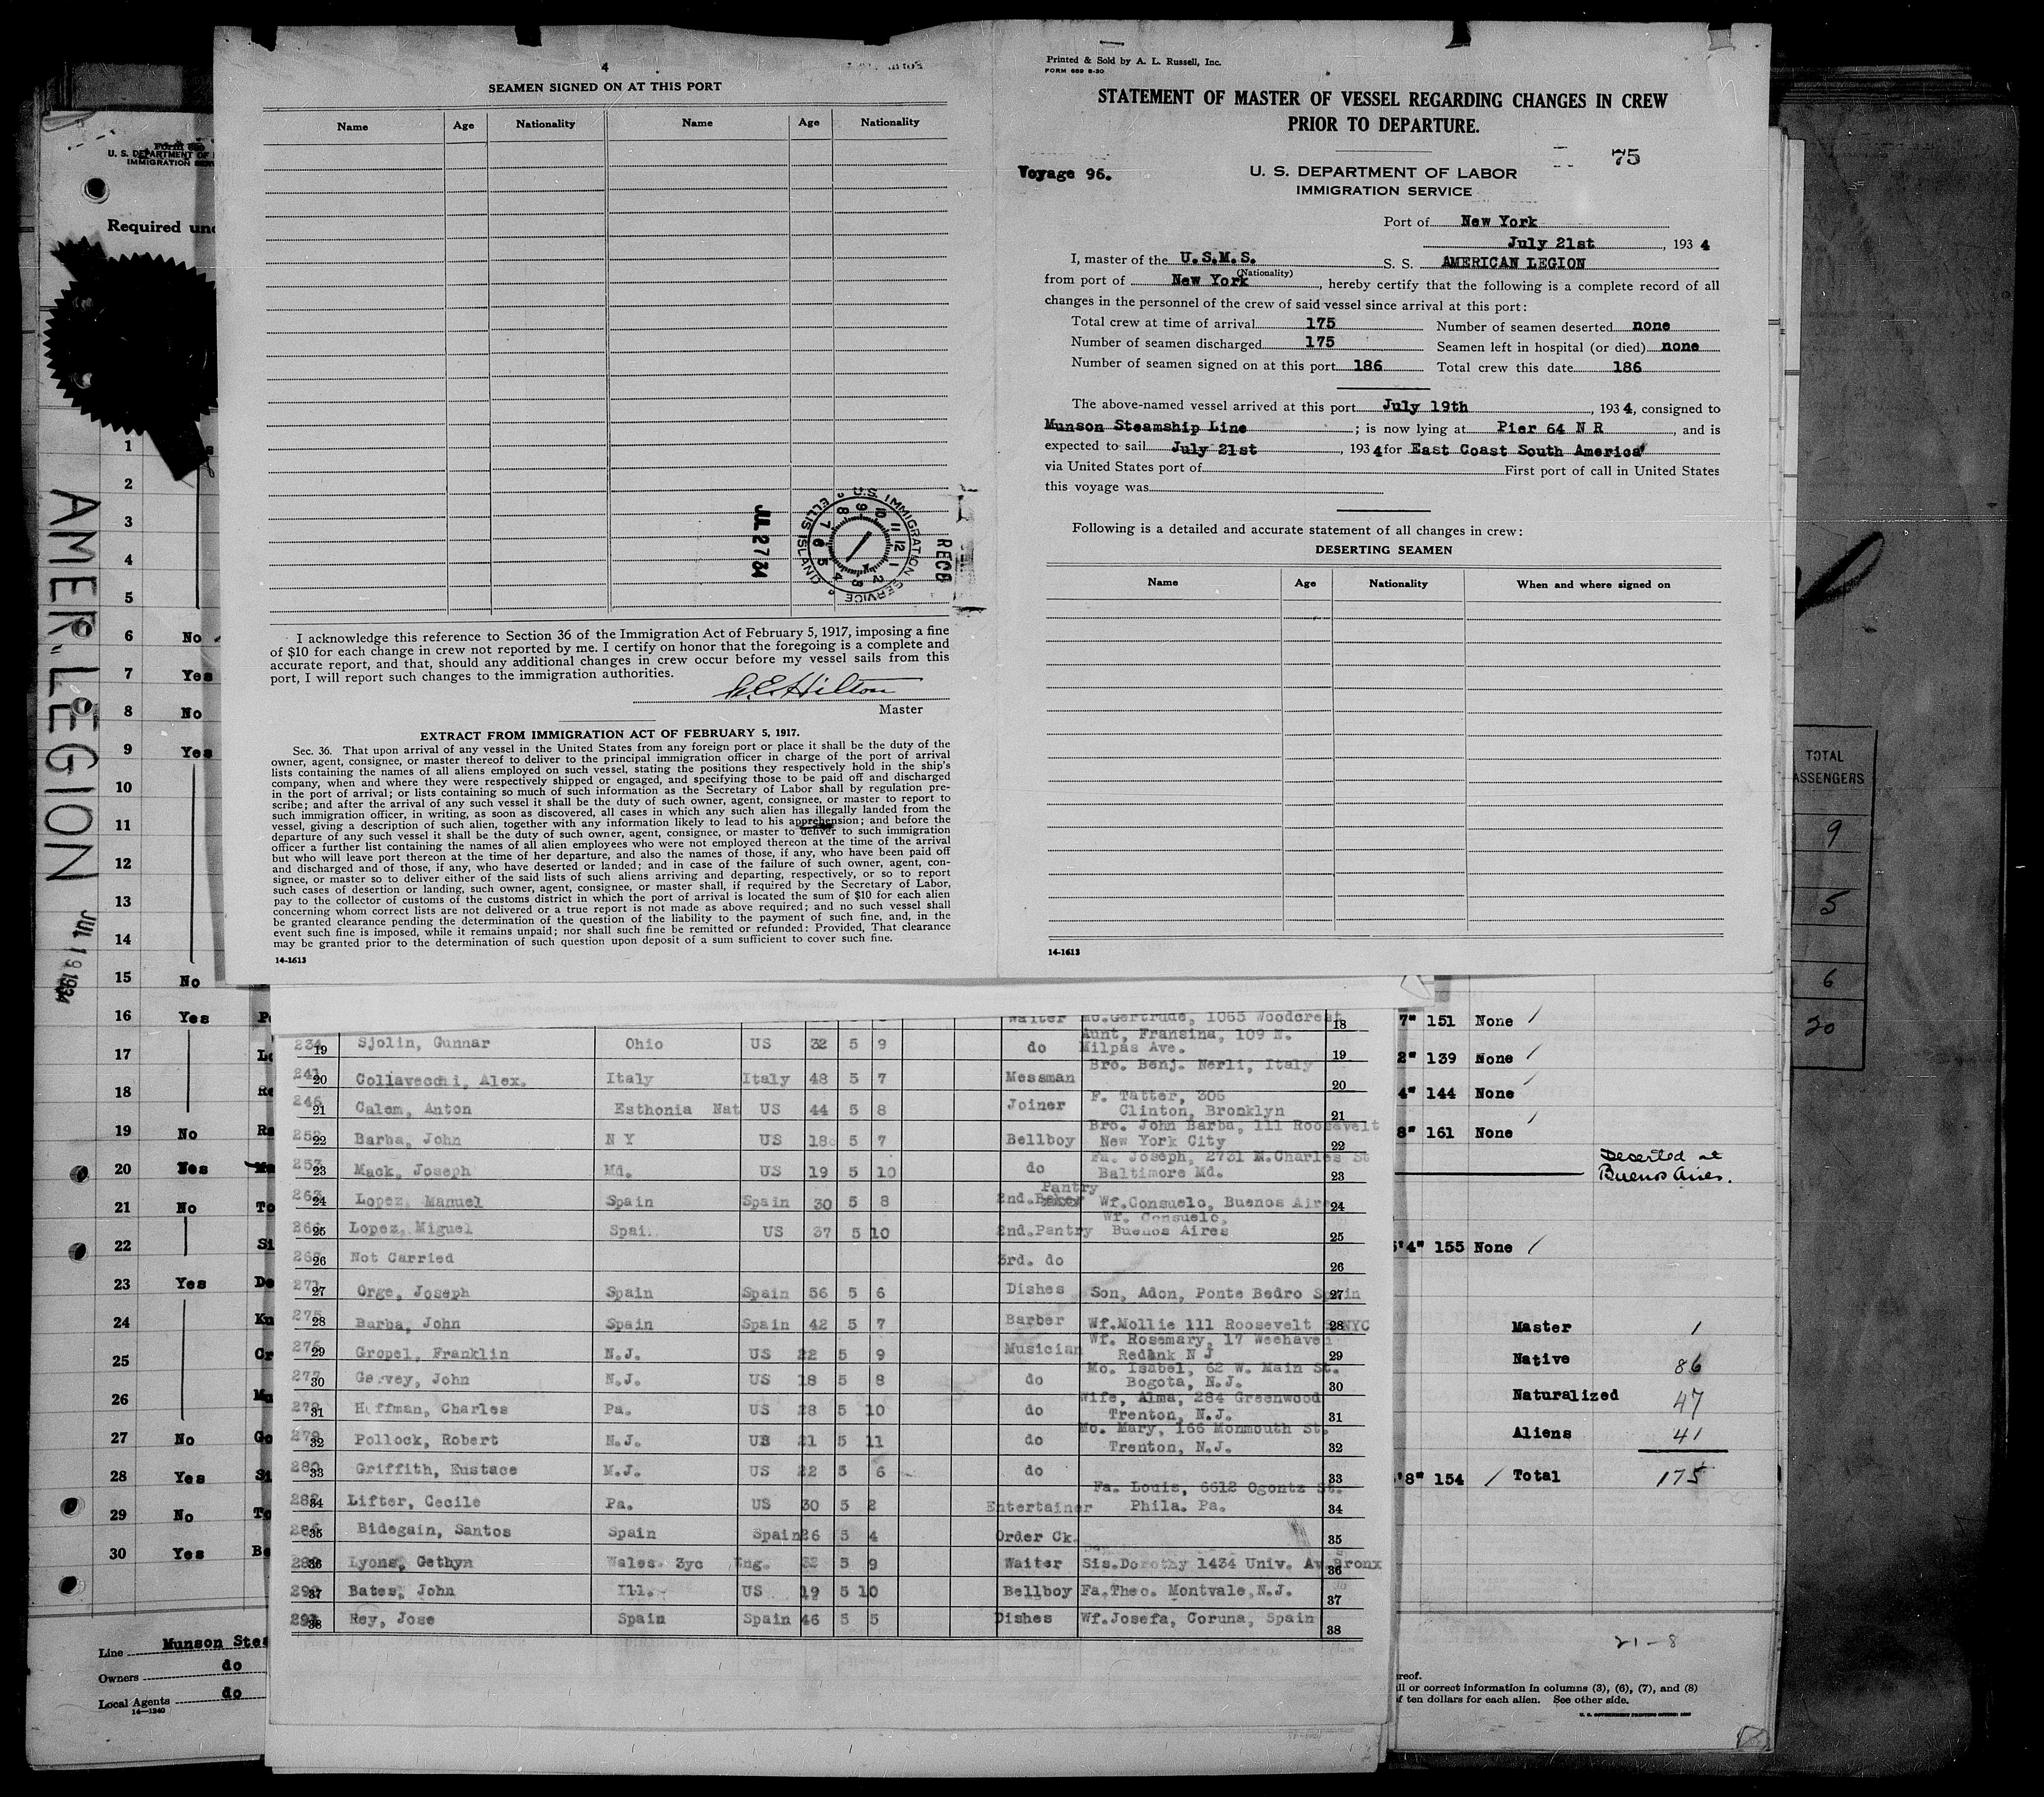 4
SEAMEN SIGNED ON AT THIS PORT
Name Age Nationality Name Age Nationality
U.S. IMMIGRATION SERVICE ELLIS ISLAND
RECD
JUL 27 34
I acknowledge this reference to Section 36 of the Immigration Act of February 5, 1917, imposing a fine
of $10 for each change in crew not reported by me. I certify on honor that the foregoing is a complete and
accurate report, and that, should any additional changes in crew occur before my vessel sails from this
port, I will report such changes to the immigration authorities.
Hilton
Master
EXTRACT FROM IMMIGRATION ACT OF FEBRUARY 5, 1917.
Sec. 36. That upon arrival of any vessel in the United States from any foreign port or place it shall be the duty of the
owner, agent, consignee, or master thereof to deliver to the principal immigration officer in charge of the port of arrival
lists containing the names of all aliens employed on such vessel, stating the positions they respectively hold in the ship's
company, when and where they were respectively shipped or engaged, and specifying those to be paid off and discharged
in the port of arrival; or lists containing so much of such information as the Secretary of Labor shall by regulation pre-
scribe; and after the arrival of any such vessel it shall be the duty of such owner, agent, consignee, or master to report to
such immigration officer, in writing, as soon as discovered, all cases in which any such alien has illegally landed from the
vessel, giving a description of such alien, together with any information likely to lead to his apprehension; and before the
departure of any such vessel it shall be the duty of such owner, agent, consignee, or master to deliver to such immigration
officer a further list containing the names of all alien employees who were not employed thereon at the time of the arrival
but who will leave port thereon at the time of her departure, and also the names of those, if any, who have been paid off
and discharged and of those, if any, who have deserted or landed; and in case of the failure of such owner, agent, con-
signee, or master so to deliver either of the said lists of such aliens arriving and departing, respectively, or so to report
such cases of desertion or landing, such owner, agent, consignee, or master shall, if required by the Secretary of Labor,
pay to the collector of customs of the customs district in which the port of arrival is located the sum of $10 for each alien
concerning whom correct lists are not delivered or a true report is not made as above required; and no such vessel shall
be granted clearance pending the determination of the question of the liability to the payment of such fine, and, in the
event such fine is imposed, while it remains unpaid; nor shall such fine be remitted or refunded: Provided, That clearance
may be granted prior to the determination of such question upon deposit of a sum sufficient to cover such fine.
14-1613
Printed & Sold by A. L. Russell, Inc.
FORM 689 8-30
STATEMENT OF MASTER OF VESSEL REGARDING CHANGES IN CREW
PRIOR TO DEPARTURE.
75
Voyage 96.
U. S. DEPARTMENT OF LABOR
IMMIGRATION SERVICE
Port of New York
July 21st, 1934
I, master of the U.S.M.S. S. S. AMERICAN LEGION
(Nationality)
from port of New York, hereby certify that the following is a complete record of all
changes in the personnel of the crew of said vessel since arrival at this port:
Total crew at time of arrival 175 Number of seamen deserted none
Number of seamen discharged 175 Seamen left in hospital (or died) none
Number of seamen signed on at this port 186 Total crew this date 186
The above-named vessel arrived at this port July 19th, 1934, consigned to
Munson Steamship Line; is now lying at Pier 64 N R, and is
expected to sail July 21st, 1934 for East Coast South America
via United States port of First port of call in United States
this voyage was
Following is a detailed and accurate statement of all changes in crew:
DESERTING SEAMEN
Name Age Nationality When and where signed on
14-1613
U. S. DEPARTMENT OF
IMMIGRATION
Required und
AMER. LEGION JUL 19 1934
1
2
3
4
5
6 No
7 Yes
8 No
9 Yes
10
11
12
13
14
15 No
16 Yes
17
18
19 No
20 Yes
21 No
22
23 Yes
24
25
26
27 No
28 Yes
29 No
30 Yes
Line Munson Stea
Owners do
Local Agents do
14-1240
Waiter Mo.Gertrude, 1065 Woodcrest 18
234 19 Sjolin, Gunnar Ohio US 32 5 9 do Aunt, Fransina, 109 N. Milpas Ave. 19
241 20 Collavecchi, Alex. Italy Italy 48 5 7 Messman Bro. Benj. Nerli, Italy 20
246 21 Calem, Anton Esthonia Nat US 44 5 8 Joiner F. Tatter, 306 Clinton, Brooklyn 21
252 22 Barba, John N Y US 18 5 7 Bellboy Bro. John Barba, 111 Roosevelt New York City 22
257 23 Mack, Joseph Md. US 19 5 10 do Fa. Joseph, 2731 M.Charles St Baltimore Md. 23
263 24 Lopez, Manuel Spain Spain 30 5 8 2nd. Pantry Wf.Consuelo, Buenos Aire 24
25 Lopez, Miguel Spai US 37 5 10 2nd.Pantry Wf. Consuelo, Buenos Aires 25
26 Not Carried 3rd. do 26
271 27 Orge, Joseph Spain Spain 56 5 6 Dishes Son, Adon, Ponte Bedro Spain 27
275 28 Barba, John Spain Spain 42 5 7 Barber Wf.Mollie 111 Roosevelt NYC 28
276 29 Gropel, Franklin N.J. US 22 5 9 Musician Wf. Rosemary, 17 Weehaven Redbnk N J 29
277 30 Garvey, John N.J. US 18 5 8 do Mo. Isabel, 62 W. Main St. Bogota, N.J. 30
278 31 Hoffman, Charles Pa. US 28 5 10 do Wife, Alma, 284 Greenwood Trenton, N.J. 31
279 32 Pollock, Robert N.J. US 21 5 11 do Mo. Mary, 166 Monmouth St. Trenton, N.J. 32
280 33 Griffith, Eustace N.J. US 22 5 6 do 33
282 34 Lifter, Cecile Pa. US 30 5 2 Entertainer Fa. Louis, 6612 Ogontz St. Phila. Pa. 34
35 Bidegain, Santos Spain Spain 26 5 4 Order Ck. 35
36 Lyons, Gethyn Wales. 3yc Eng. 32 5 9 Waiter Sis.Dorothy 1434 Univ. Av Bronx 36
37 Bates, John Ill. US 19 5 10 Bellboy Fa.Theo. Montvale,N.J. 37
38 Rey, Jose Spain Spain 46 5 5 Dishes Wf.Josefa, Coruna, Spain 38
7" 151 None
2" 139 None
4" 144 None
8" 161 None
Deserted at
Buenos Aires.
4" 155 None
Master 1
Native 86
Naturalized 47
Aliens 41
8" 154 Total 175
21-8
reof.
ll or correct information in columns (3), (6), (7), and (8)
f ten dollars for each alien. See other side.
TOTAL
ASSENGERS
9
5
6
20